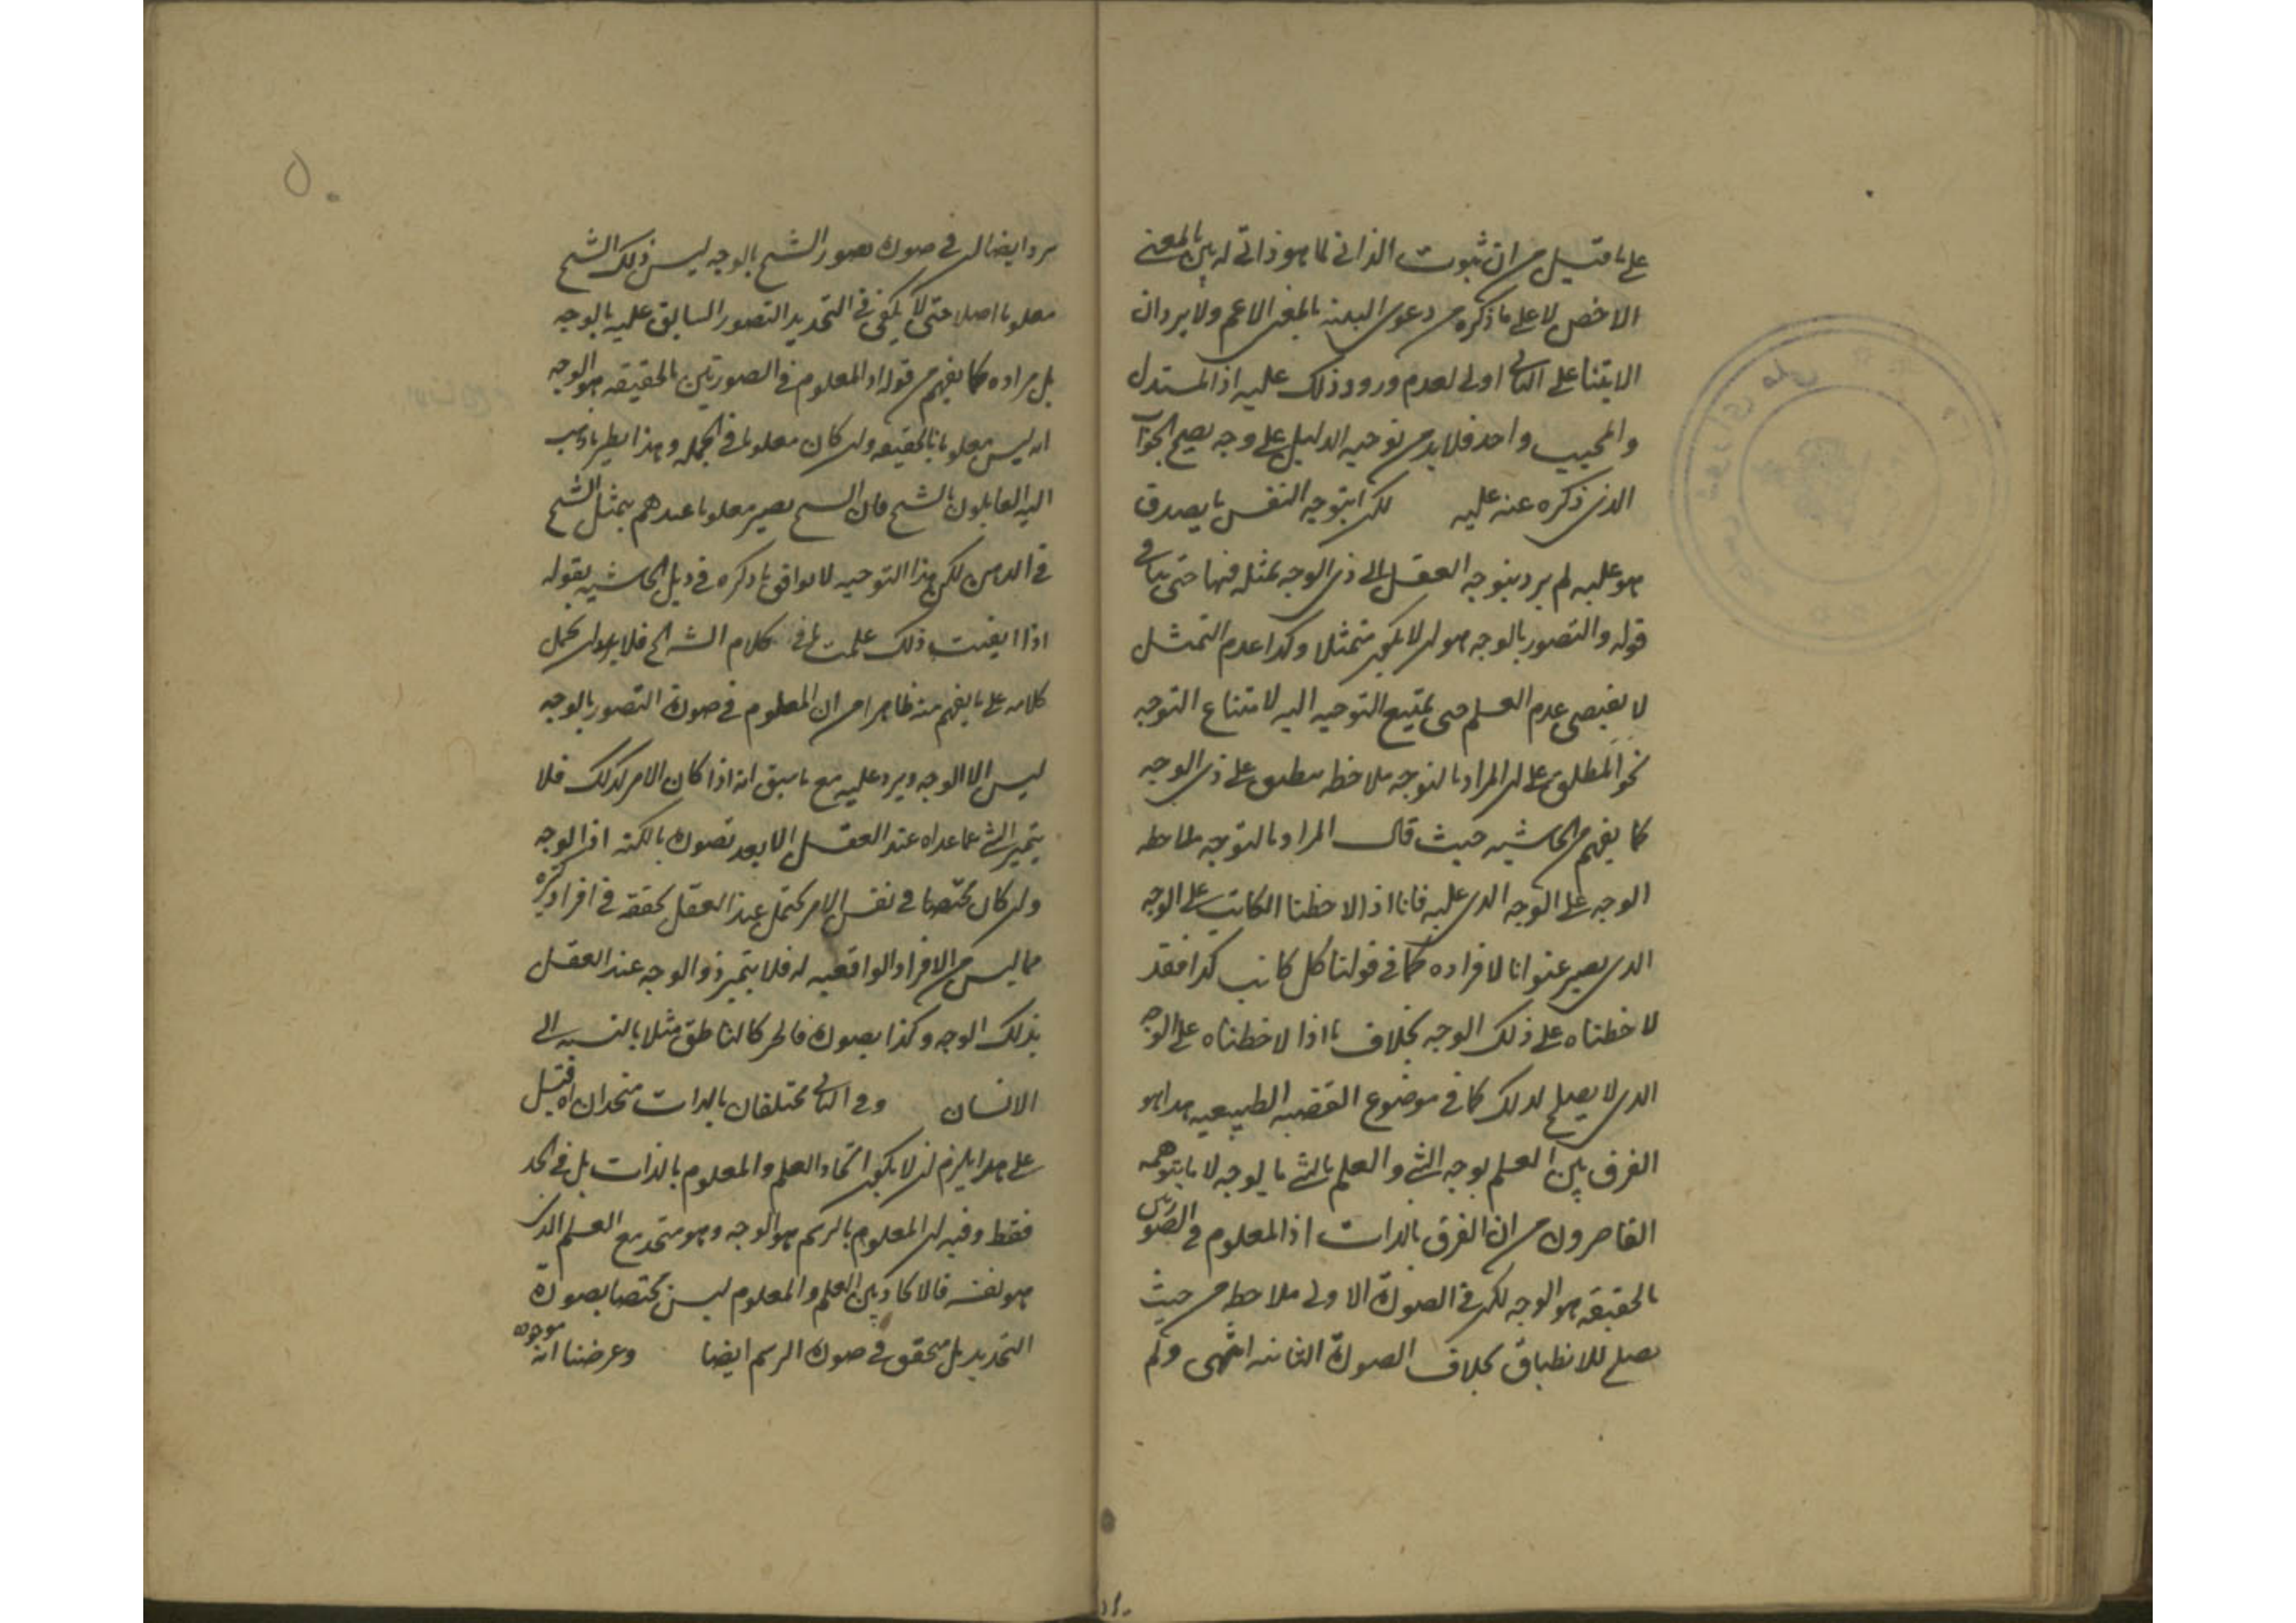 على ما قيل من ان ثبوت الذاتي لما هو ذاتي له بين بالمعنى
الاخص لا على ما ذكره من دعوى البداهة بالمعنى الاعم ولا يرد ان
الابتناء على الثاني اولى لعدم ورود ذلك عليه اذ المستدل
والمجيب واحد فلا بد من توجيه الدليل على وجه يصح الجواب
الذي ذكره عنه عليه لكن ا بتوجه النفس ما يصدق
هو عليه لم يرد بتوجه العقل الى ذي الوجه تمثله فيها حتى ينافي
قوله والتصور بالوجه هو ان لا يكون متمثلا وكذا عدم التمثل
لا يقتضي عدم العلم حتى يمتنع التوجه اليه لامتناع التوجه
نحو المطلق على ان المراد بالتوجه ملاحظة منطبق على ذي الوجه
كما يفهم من الحاشيه حيث قال المراد بالتوجه ملاحظة
الوجه على الوجه الذي عليه فانا اذا لاحظنا الكاتب على الوجه
الذي يصير عنوانا لافراده كما في قولنا كل كاتب كذا فقد
لاحظناه على ذلك الوجه بخلاف ما اذا لاحظناه على الوجه
الذي لا يصلح لذلك كما في موضوع القضيه الطبيعيه هذا هو
الفرق بين العلم بوجه الشي والعلم بالشي بالوجه لا ما يتوهمه
القاصرون من ان الفرق بالذات اذ المعلوم في الصورتين
بالحقيقه هو الوجه لكن في الصورة الاولى ملاحظ من حيث
يصلح للانطباق بخلاف الصورة الثانيه انتهى ولم
٥٠
يرد ايضا ان في صورة تصور الشبح بالوجه ليس ذلك الشبح
معلوما اصلا حتى لا يكفي في التحديد التصور السابق عليه بالوجه
بل مراده كما يفهم من قوله اذ المعلوم في الصورتين بالحقيقه هو الوجه
انه ليس معلوما بالحقيقه وان كان معلوما في الجمله وهذا نظير ما ذهب
اليه القايلون بالشبح فان الشبح يصير معلوما عندهم بتمثل الشبح
في الذهن لكن هذا التوجيه لا يوافق ما ذكره في ذيل الحاشيه بقوله
اذا ايقنت ذلك علمت ما في كلام الشارح فلا يحمل
كلامه على ما يفهم منه ظاهرا من ان المعلوم في صورة التصور بالوجه
ليس الا الوجه ويرد عليه مع ما سبق انه اذا كان الامر كذلك فلا
يتميز الشي عما عداه عند العقل الا بعد تصوره بالكنه اذ الوجه
وان كان مختصا في نفس الامر يحتمل عند العقل تحققه في افراد كثيره
مما ليس من الافراد الواقعيه له فلا يتميز ذو الوجه عند العقل
بذلك الوجه وكذا بصورة كالناطق مثلا بالنسبه الى
الانسان وفي الثاني مختلفان بالذات متحدان اه قيل
على هذا يلزم ان لا يكون اتحاد العلم والمعلوم بالذات بل في الحد
فقط وفيه ان المعلوم بالرسم هو الوجه وهو متحد مع العلم الذي
هو نفسه فالاتحاد بين العلم والمعلوم ليس مختصا بصورة
التحديد بل متحقق في صورة الرسم ايضا وعرضنا انه موجود